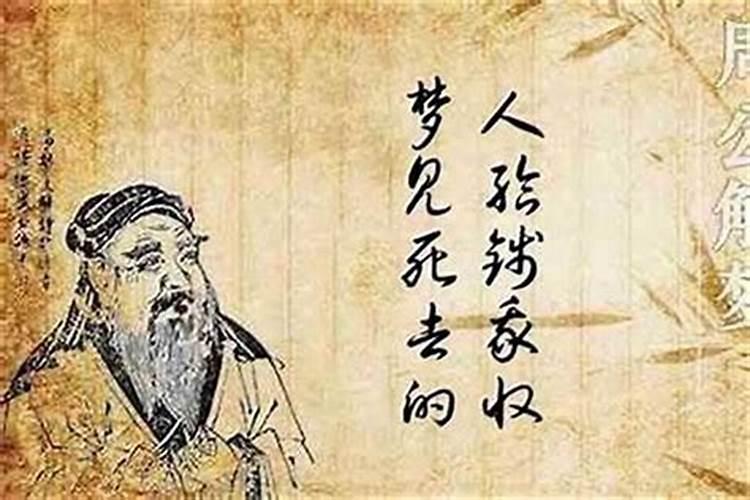 周公解梦
梦见死去的
人给钱我收